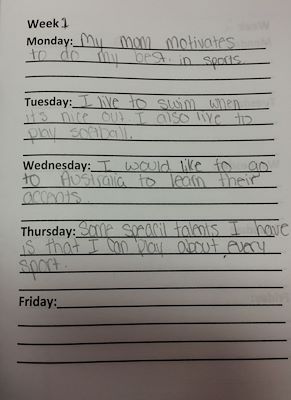 Week 1
Monday: My mom motivates
to do my best in sports.
Tuesday: I live to swim when
it's nice out. I also live to
play softball.
Wednesday: I would like to go
to Australia to learn their
accents.
Thursday: Some spearil talents I have
is that I can play about every
sport.
Friday: